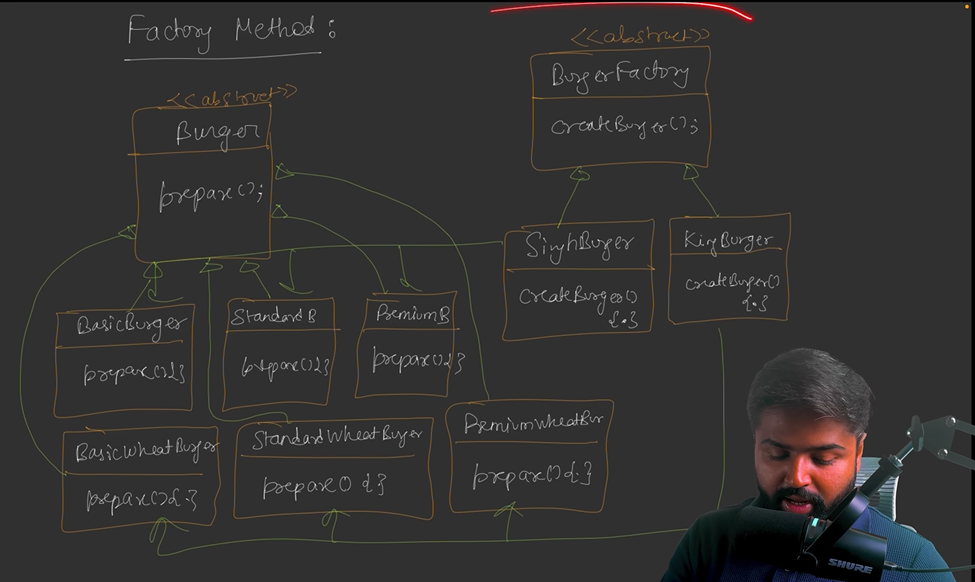 Factory Method:
<<abstract>>
Burger
prepare();
<<abstract>>
BurgerFactory
createBurger();
SinghBurger
createBurger()
{.}
KingBurger
createBurger()
{.}
BasicBurger
prepare(){}
StandardB
prepare(){}
PremiumB
prepare(){}
BasicWheatBurger
prepare(){.}
StandardWheatBurger
prepare() {}
PremiumWheatBur
prepare(){.}
SHURE